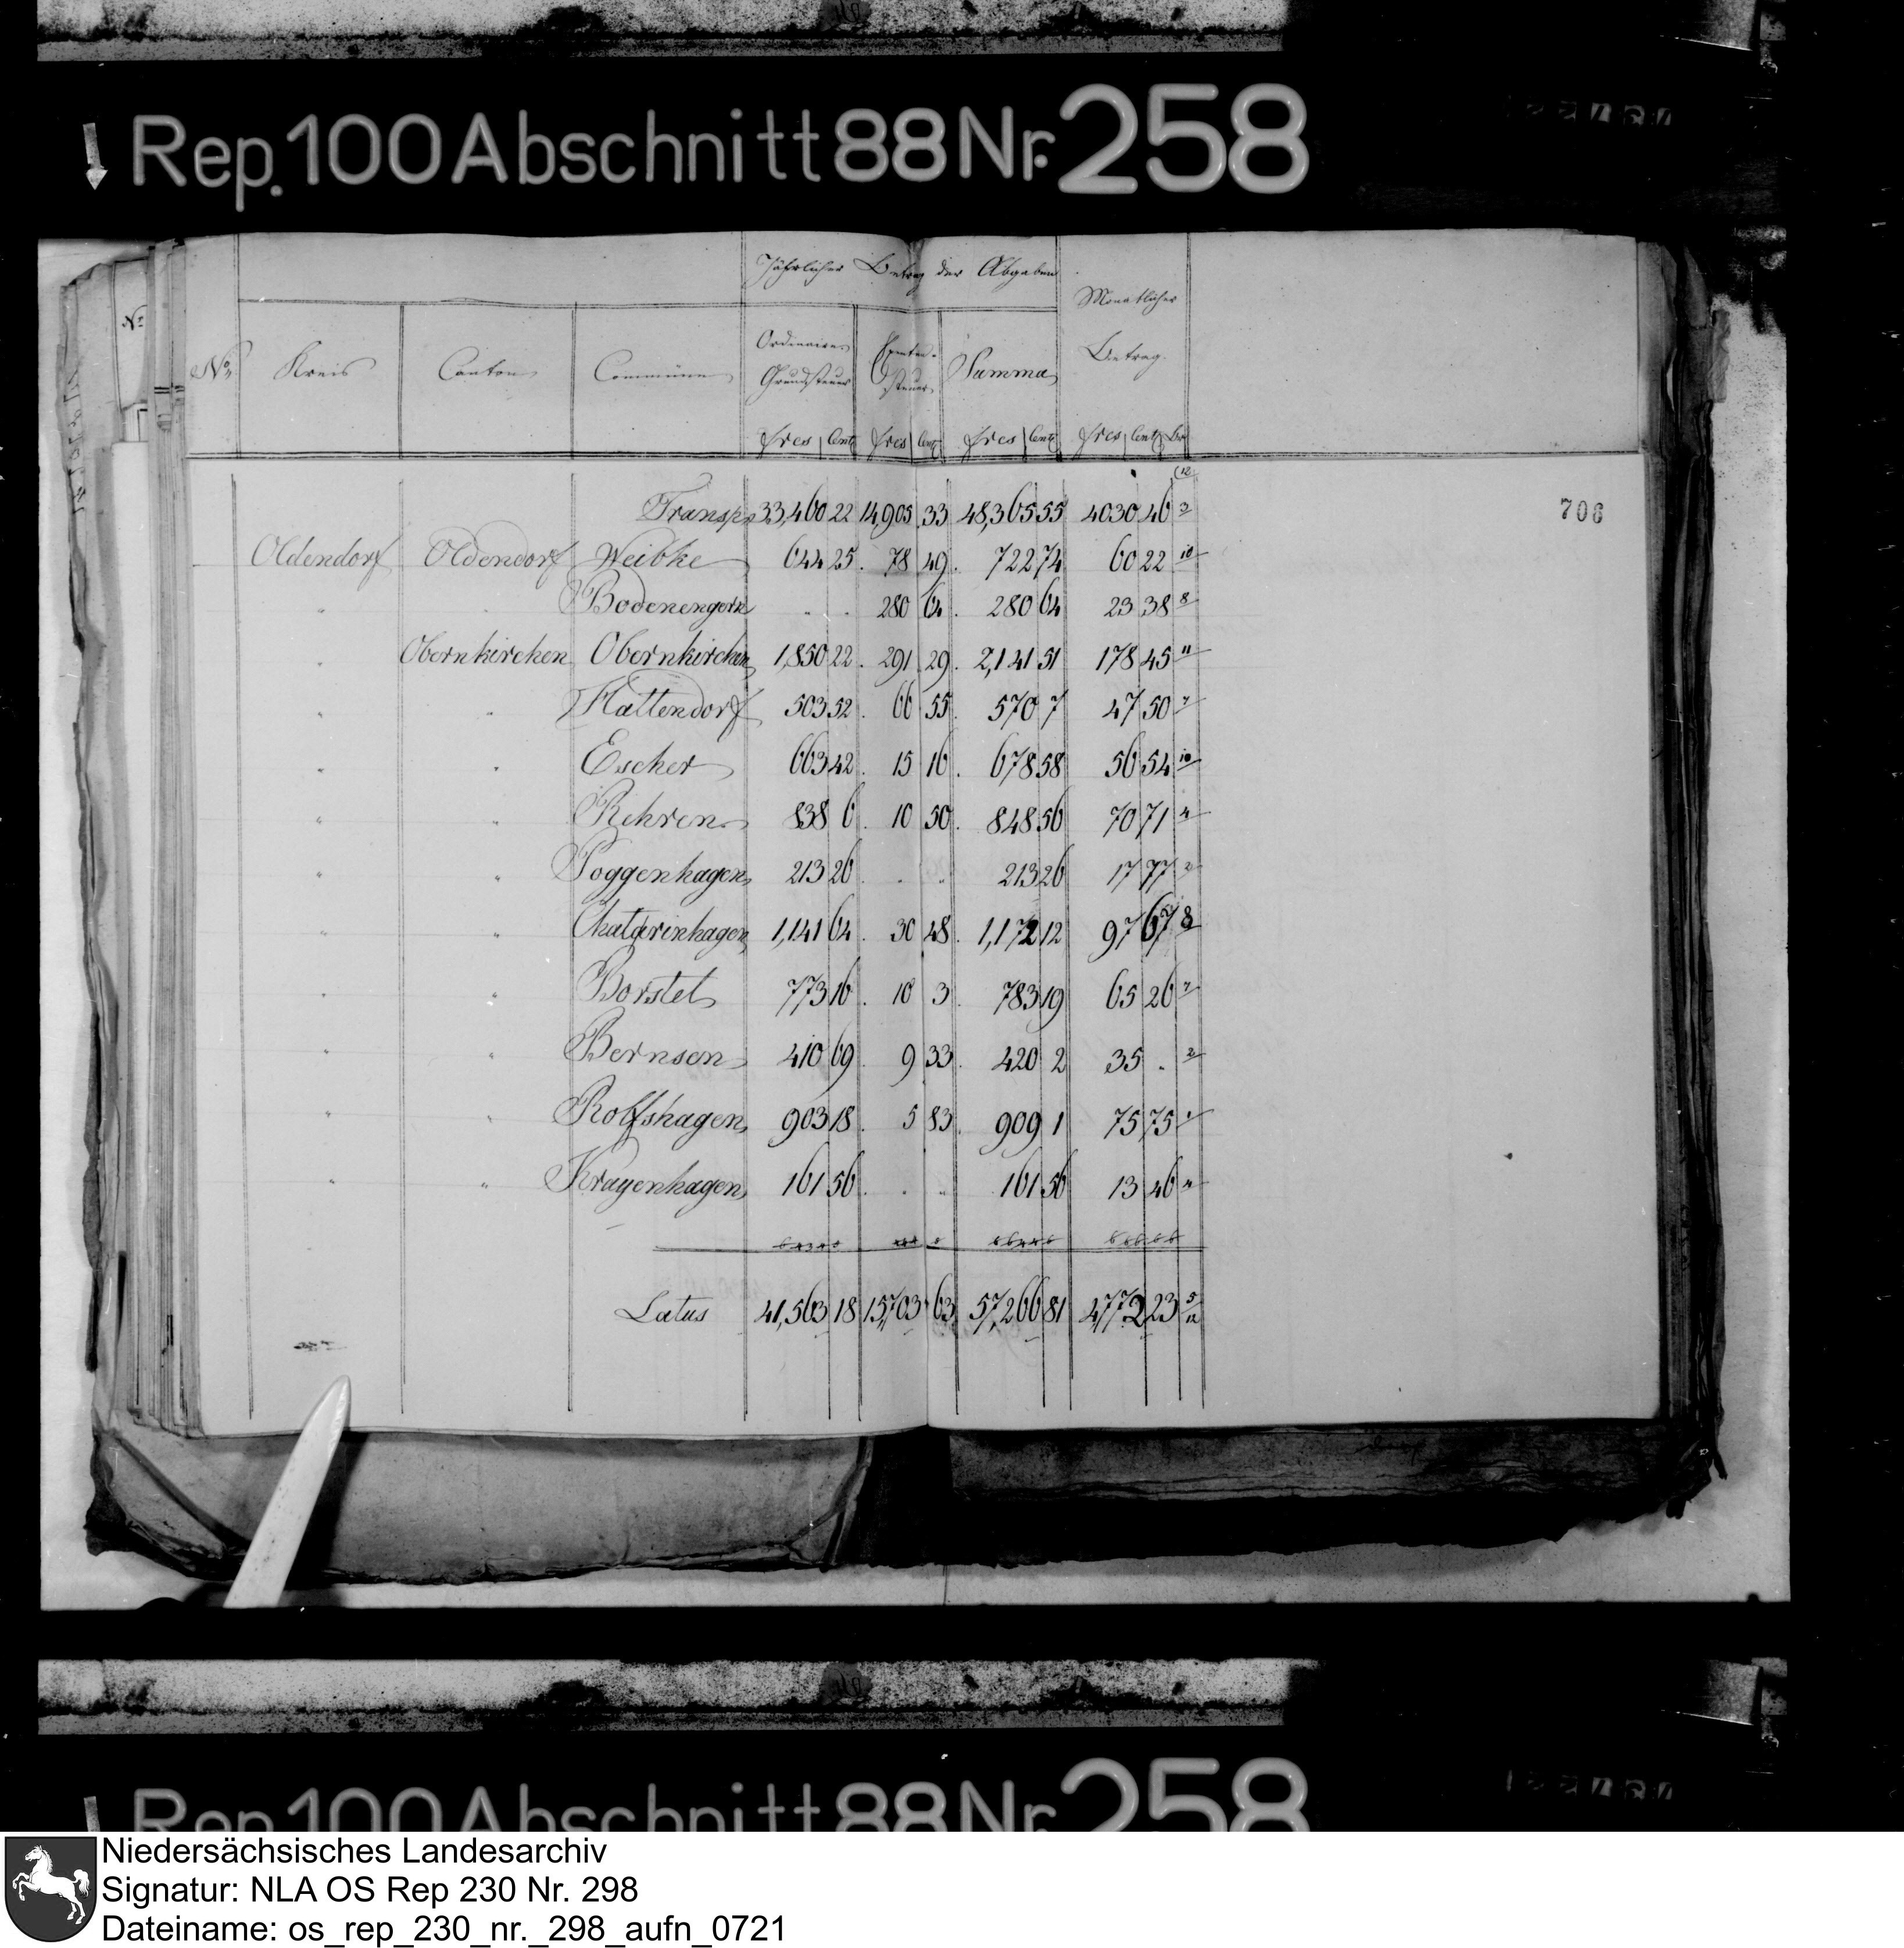 Rep. 100 Abschnitt 88 Nr. 258
Jährlicher Betrag der Abgaben
Monatlicher Betrag.
No. Kreis Canton Commünen Ordinaire Grundsteuer Exemten-steuer Summa
Frcs Cent Frcs Cent Frcs Cent Frcs Cent
(12
Transp. 33,460 22 14,905 33 48,365 55 4030 46 3
706
Oldendorf Oldendorf Weibke 644 25 . 78 49 . 722 74 60 22 10
" " Bodenengern . . 280 64 . 280 64 23 38 8
" Obernkirchen Obernkirchen 1,850 22 . 291 29 . 2,141 51 178 45 11
" " Hattendorf 503 52 . 66 55 . 570 7 47 50 7
" " Escher 663 42 . 15 16 . 678 58 56 54 10
" " Rehren 838 6 . 10 50 . 848 56 70 71 4
" " Poggenhagen 213 26 . . 213 26 17 77 2
" " Chatarinhagen 1,141 64 . 30 48 . 1,172 12 97 67 8
" " Borstel 773 16 . 10 3 . 783 19 65 26 7
" " Bernsen 410 69 . 9 33 . 420 2 35 . 2
" " Rolfshagen 903 18 . 5 83 . 909 1 75 75 1
" " Krayenhagen 161 56 . . 161 56 13 46 4
Latus 41,563 18 15,703 63 57,266 81 4,772 23 5/12
Rep. 100 Abschnitt 88 Nr. 258
Niedersächsisches Landesarchiv
Signatur: NLA OS Rep 230 Nr. 298
Dateiname: os_rep_230_nr._298_aufn_0721